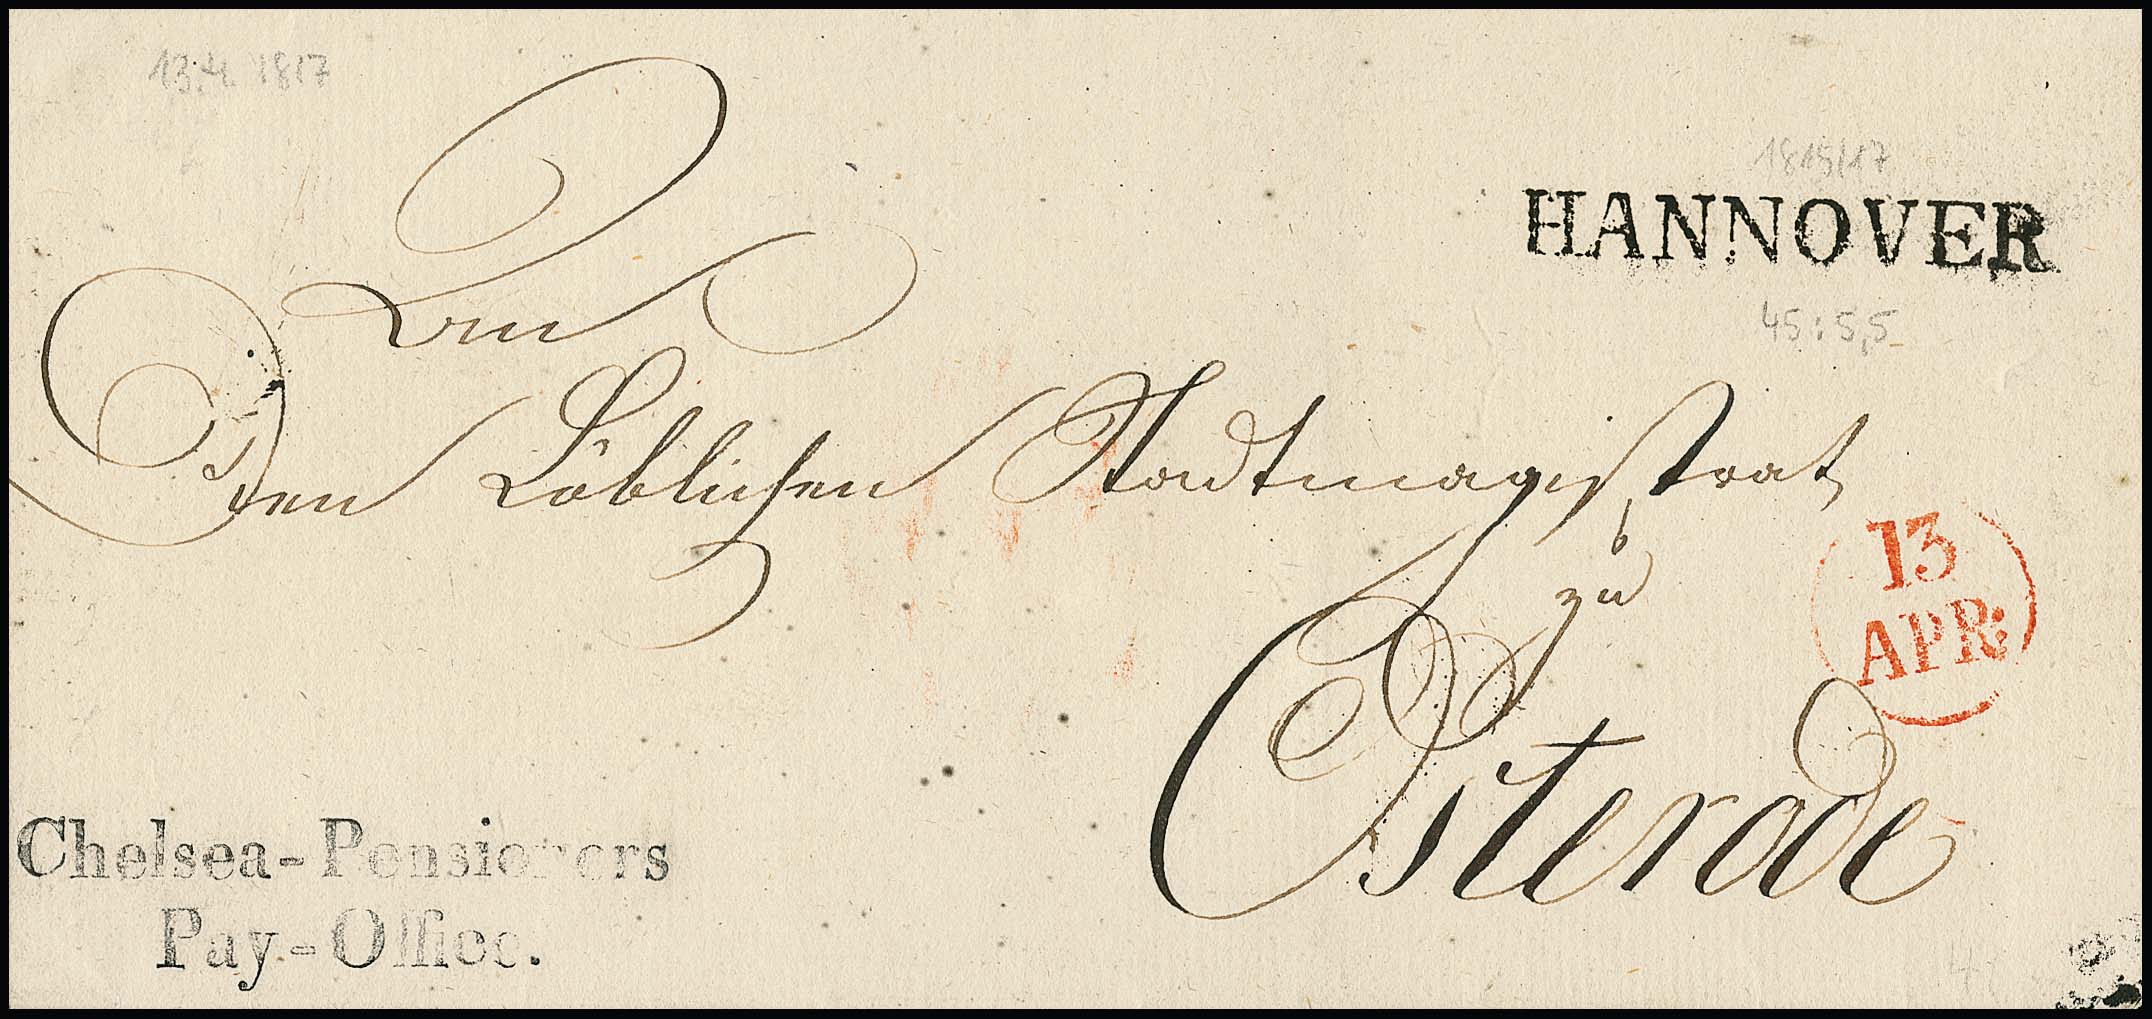 13.4. 1817
1815/17
HANNOVER
45:5,5
An
den Löblichen Stadtmagistrat
zu
Osterode
13
APR:
Chelsea-Pensioners
Pay-Office.